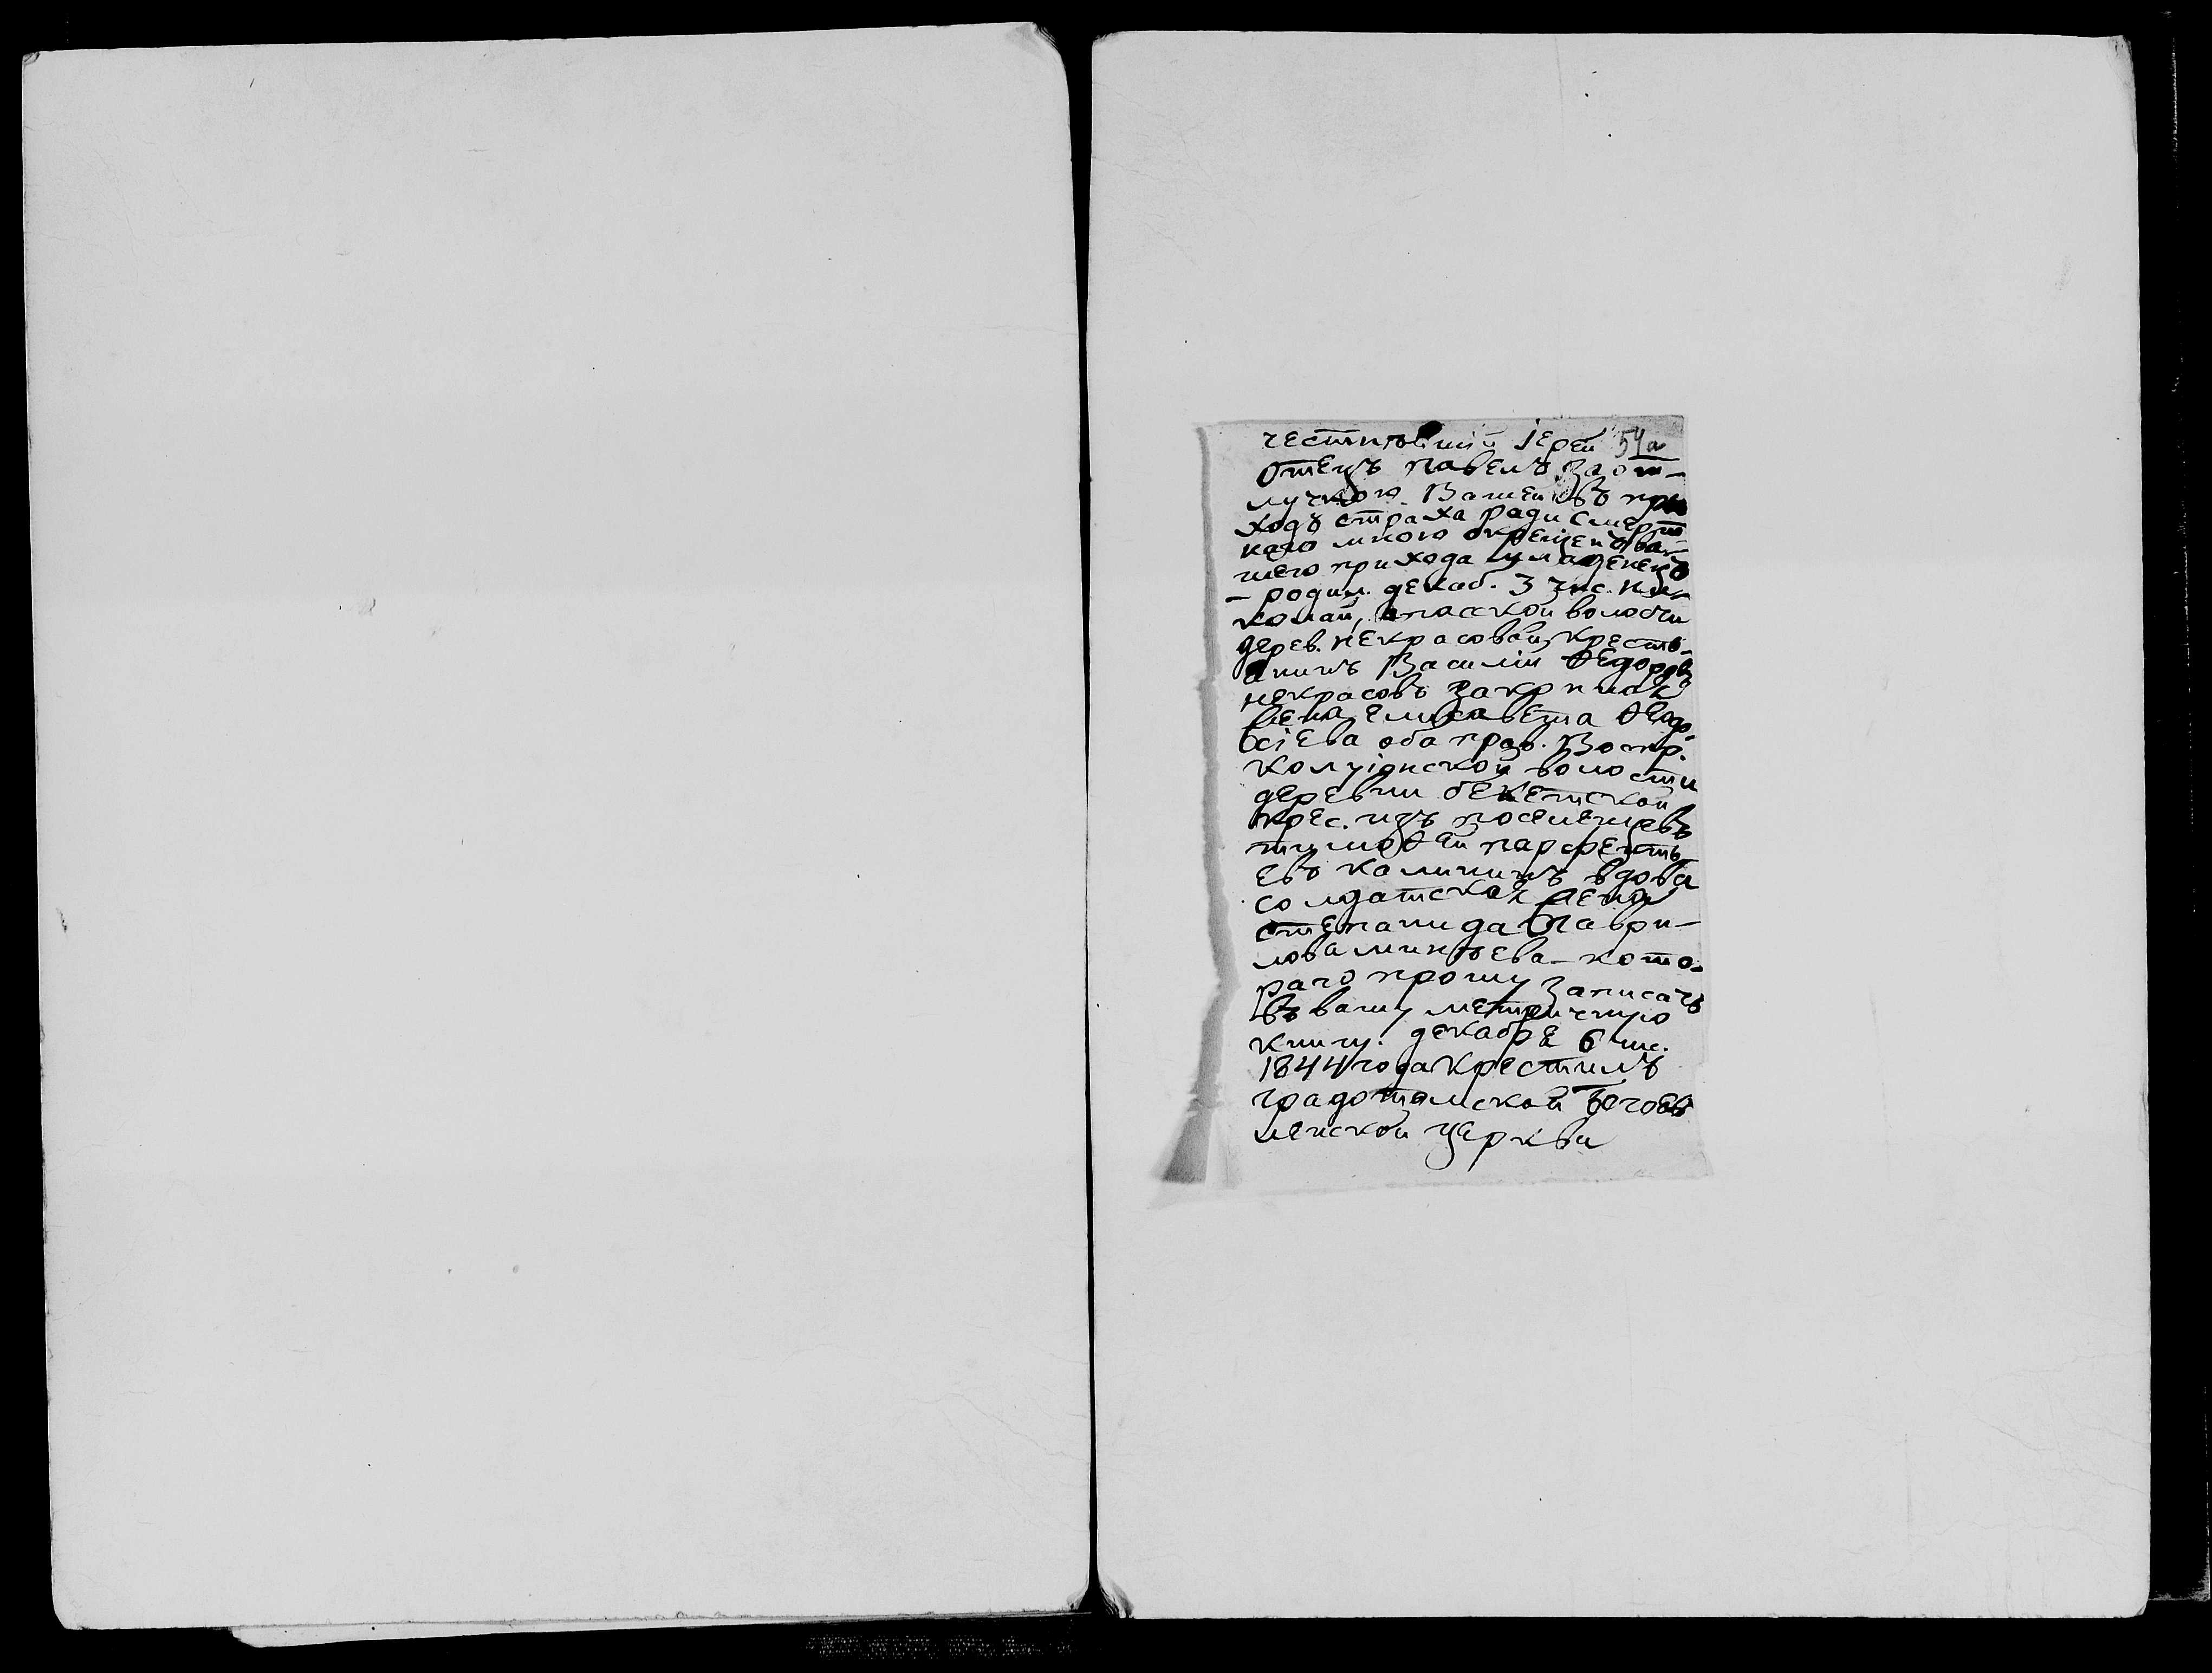 честнѣйшій іерей 54а
отецъ павелъ за от-
лучкою Вашей въ при
ходѣ страха ради смерт
наго мною окрещенъ ва-
шего прихода младенецъ
- родил. декаб. 3 чис. ни-
колай, спасской волости
дерев. некрасовой, кресть-
янинъ Василій Ѳедоровъ
некрасовъ законная
жена, елисавета Ѳеодо-
сіева оба прав. Воспр.
колуіонской волости
деревни бекетской
крес. изъ поселенцевъ
тимоѳей парфенть
евъ калининъ вдова
солдатская жена
степанида Гаври-
лова минѣева - кото-
раго прошу записать
въ вашу метричную
книгу. декабря 6 чис.
1844 года Крестилъ
градотомской Богояв
ленской церкви